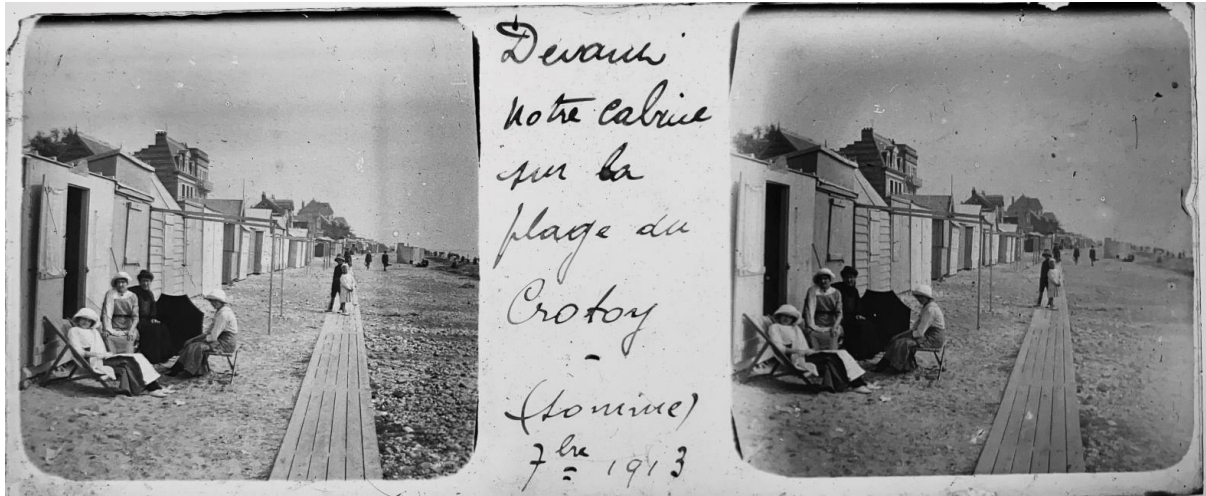 Devant
notre cabine
sur la
plage du
Crotoy
-
(Somme)
7bre 1913